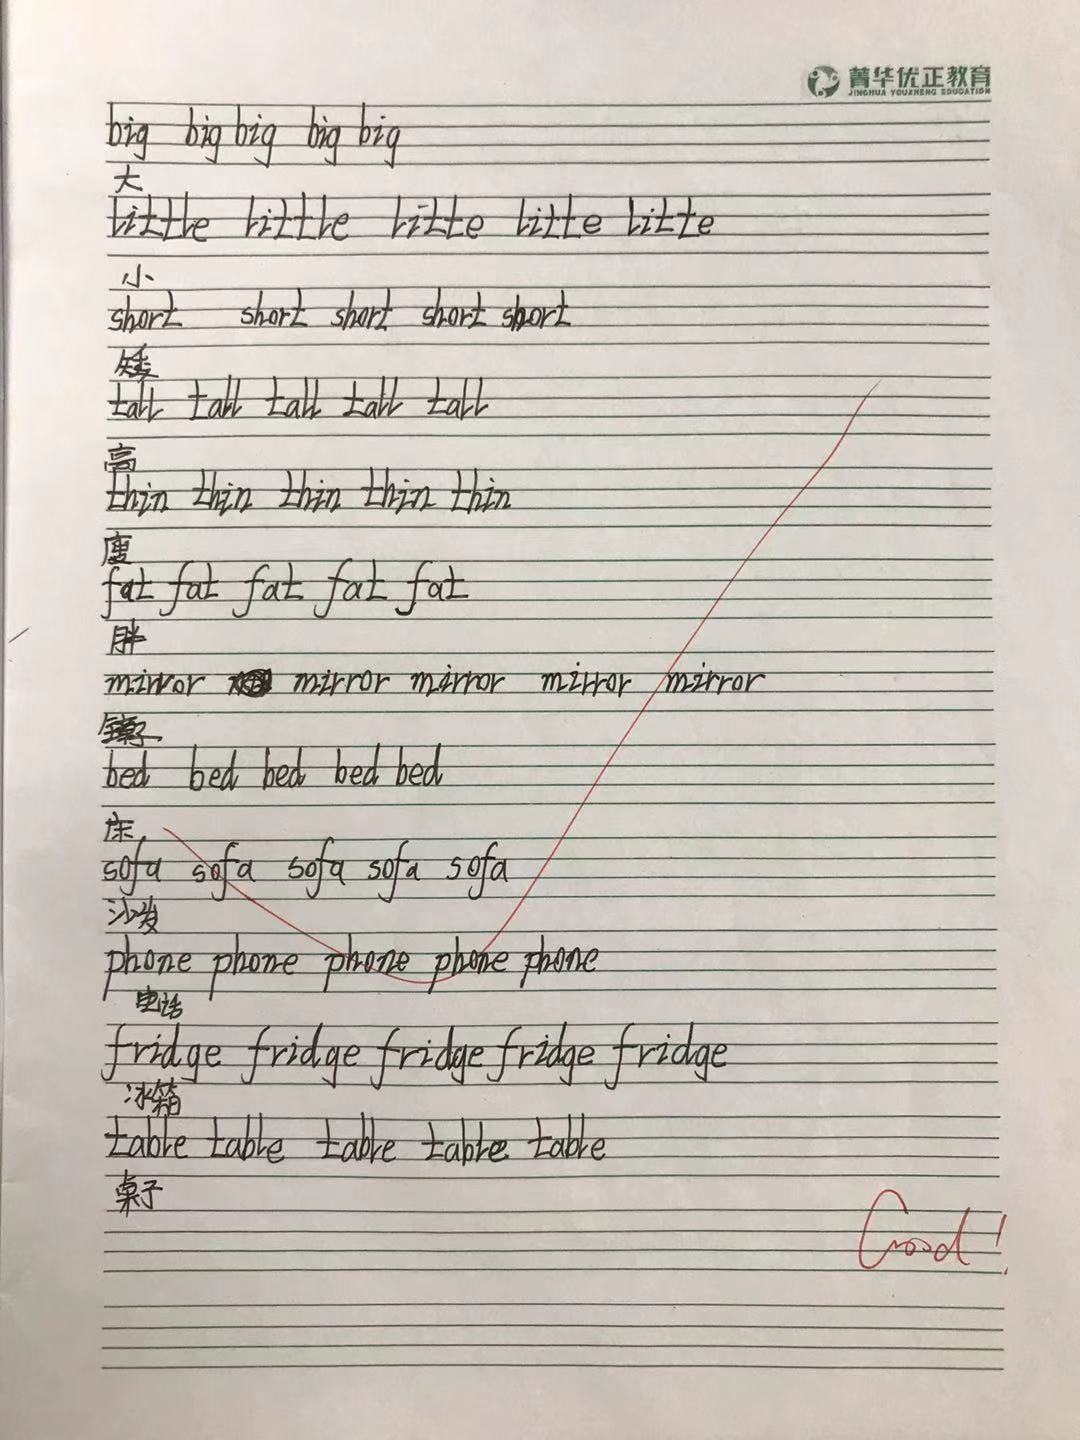 菁华优正教育
JINGHUA YOUZHENG EDUCATION
big big big big big
大
little little litte litte litte
小
short short short short short
矮
tall tall tall tall tall
高
thin thin thin thin thin
瘦
fat fat fat fat fat
胖
mirror mirror mirror mirror mirror
镜子
bed bed bed bed bed
床
sofa sofa sofa sofa sofa
沙发
phone phone phone phone phone
电话
fridge fridge fridge fridge fridge
冰箱
table table table table table
桌子
Good!